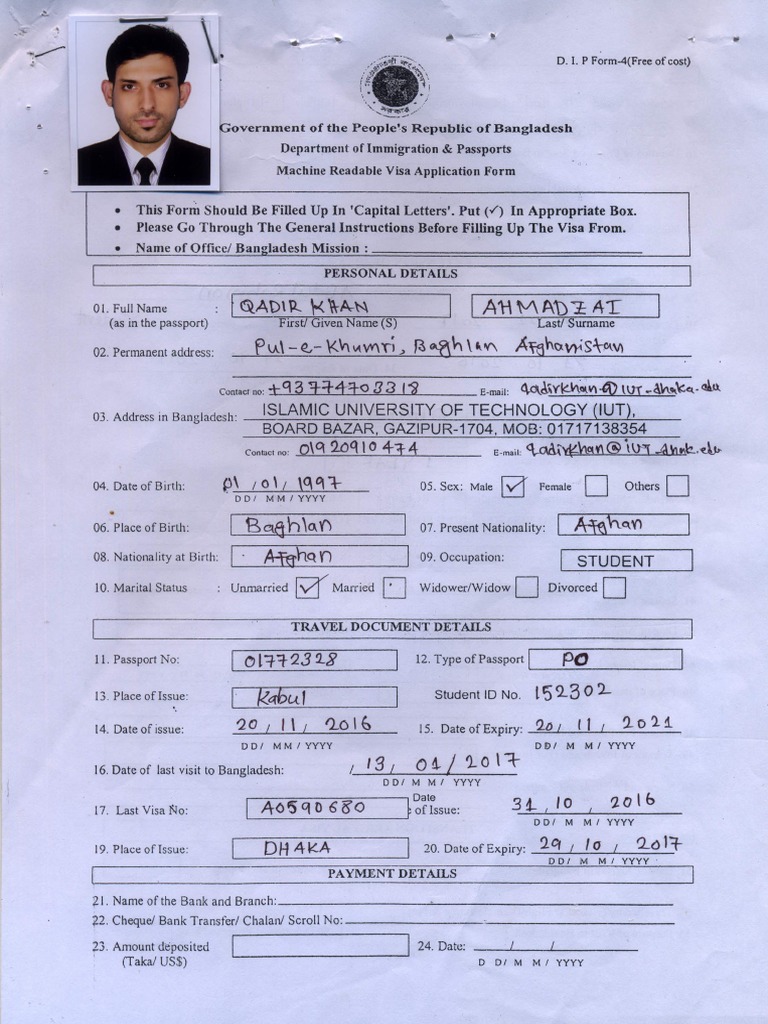 D. I. P Form-4(Free of cost)
Government of the People's Republic of Bangladesh
Department of Immigration & Passports
Machine Readable Visa Application Form
• This Form Should Be Filled Up In 'Capital Letters'. Put (✓) In Appropriate Box.
• Please Go Through The General Instructions Before Filling Up The Visa From.
• Name of Office/ Bangladesh Mission :
PERSONAL DETAILS
01. Full Name : QADIR KHAN AHMADZAI
(as in the passport) First/ Given Name (S) Last/ Surname
02. Permanent address: Pul-e-Khumri, Baghlan Afghanistan
Contact no: +93774703318 E-mail: qadirkhan@iut-dhaka.edu
03. Address in Bangladesh: ISLAMIC UNIVERSITY OF TECHNOLOGY (IUT),
BOARD BAZAR, GAZIPUR-1704, MOB: 01717138354
Contact no: 01920910474 E-mail: qadirkhan@iut-dhak.edu
04. Date of Birth: 01/01/1997 05. Sex: Male ✓ Female Others
DD/ MM/ YYYY
06. Place of Birth: Baghlan 07. Present Nationality: Afghan
08. Nationality at Birth: Afghan 09. Occupation: STUDENT
10. Marital Status : Unmarried ✓ Married Widower/Widow Divorced
TRAVEL DOCUMENT DETAILS
11. Passport No: 01772328 12. Type of Passport PO
13. Place of Issue: Kabul Student ID No. 152302
14. Date of issue: 20/11/2016 15. Date of Expiry: 20/11/2021
DD/ MM/ YYYY DD/ M M/ YYYY
16. Date of last visit to Bangladesh: 13/01/2017
DD/ M M/ YYYY
17. Last Visa No: A0590680 Date of Issue: 31/10/2016
DD/ M M/ YYYY
19. Place of Issue: DHAKA 20. Date of Expiry: 29/10/2017
DD/ M M/ YYYY
PAYMENT DETAILS
21. Name of the Bank and Branch:
22. Cheque/ Bank Transfer/ Chalan/ Scroll No:
23. Amount deposited 24. Date: / /
(Taka/ US$) D D/ M M/ YYYY